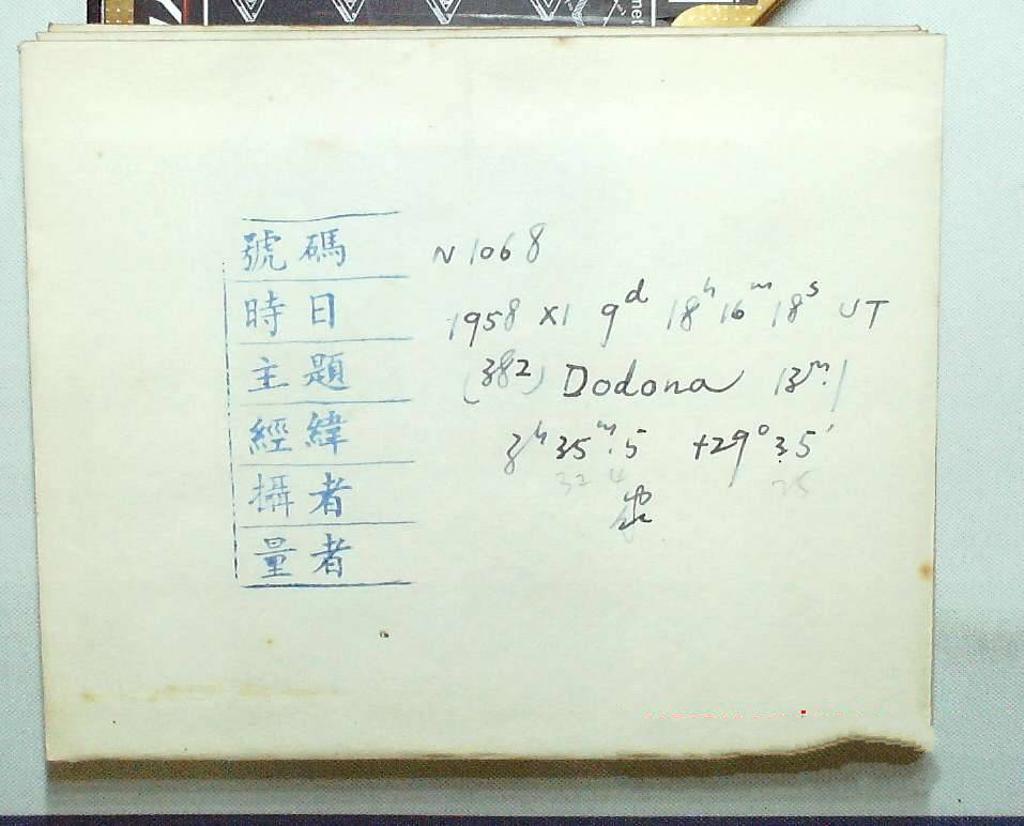 號碼 N 1068
時日 1958 XI 9ᵈ 18ʰ 16ᵐ 18ˢ UT
主題 (382) Dodona 13ᵐ.1
經緯 3ʰ 35ᵐ.5 +29° 35′
32 4 25
攝者
量者